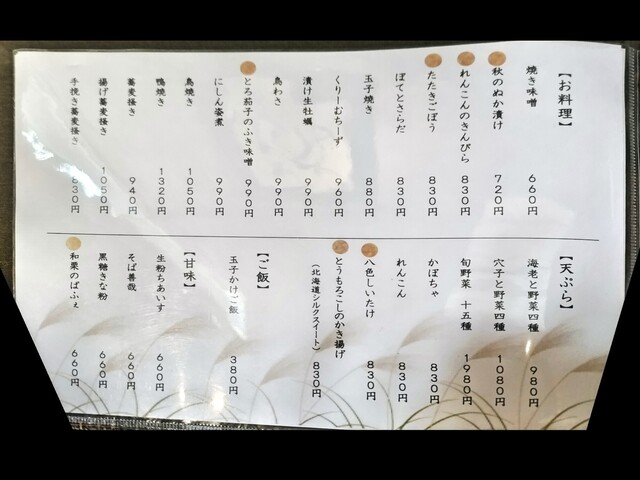 【お料理】
焼き味噌 660円
秋のぬか漬け 720円
れんこんのきんぴら 830円
たたきごぼう 830円
ぽてとさらだ 830円
玉子焼き 880円
くりーむちーず 960円
漬け生牡蠣 990円
鳥わさ 990円
とろ茄子のふき味噌 990円
にしん姿煮 990円
鳥焼き 1050円
鴨焼き 1320円
蕎麦掻き 940円
揚げ蕎麦掻き 1050円
手挽き蕎麦掻き 830円
【天ぷら】
海老と野菜四種 980円
穴子と野菜四種 1080円
旬野菜 十五種 1980円
かぼちゃ 830円
れんこん 830円
八色しいたけ 830円
とうもろこしのかき揚げ
(北海道シルクスイート) 830円
【ご飯】
玉子かけご飯 380円
【甘味】
生粉ちあいす 660円
そば善哉 660円
黒糖きな粉 660円
和栗のぱふぇ 660円